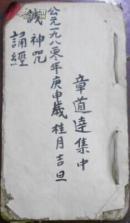 公元一九八〇年庚申歲桂月吉旦
神咒
誦經
章道達集中